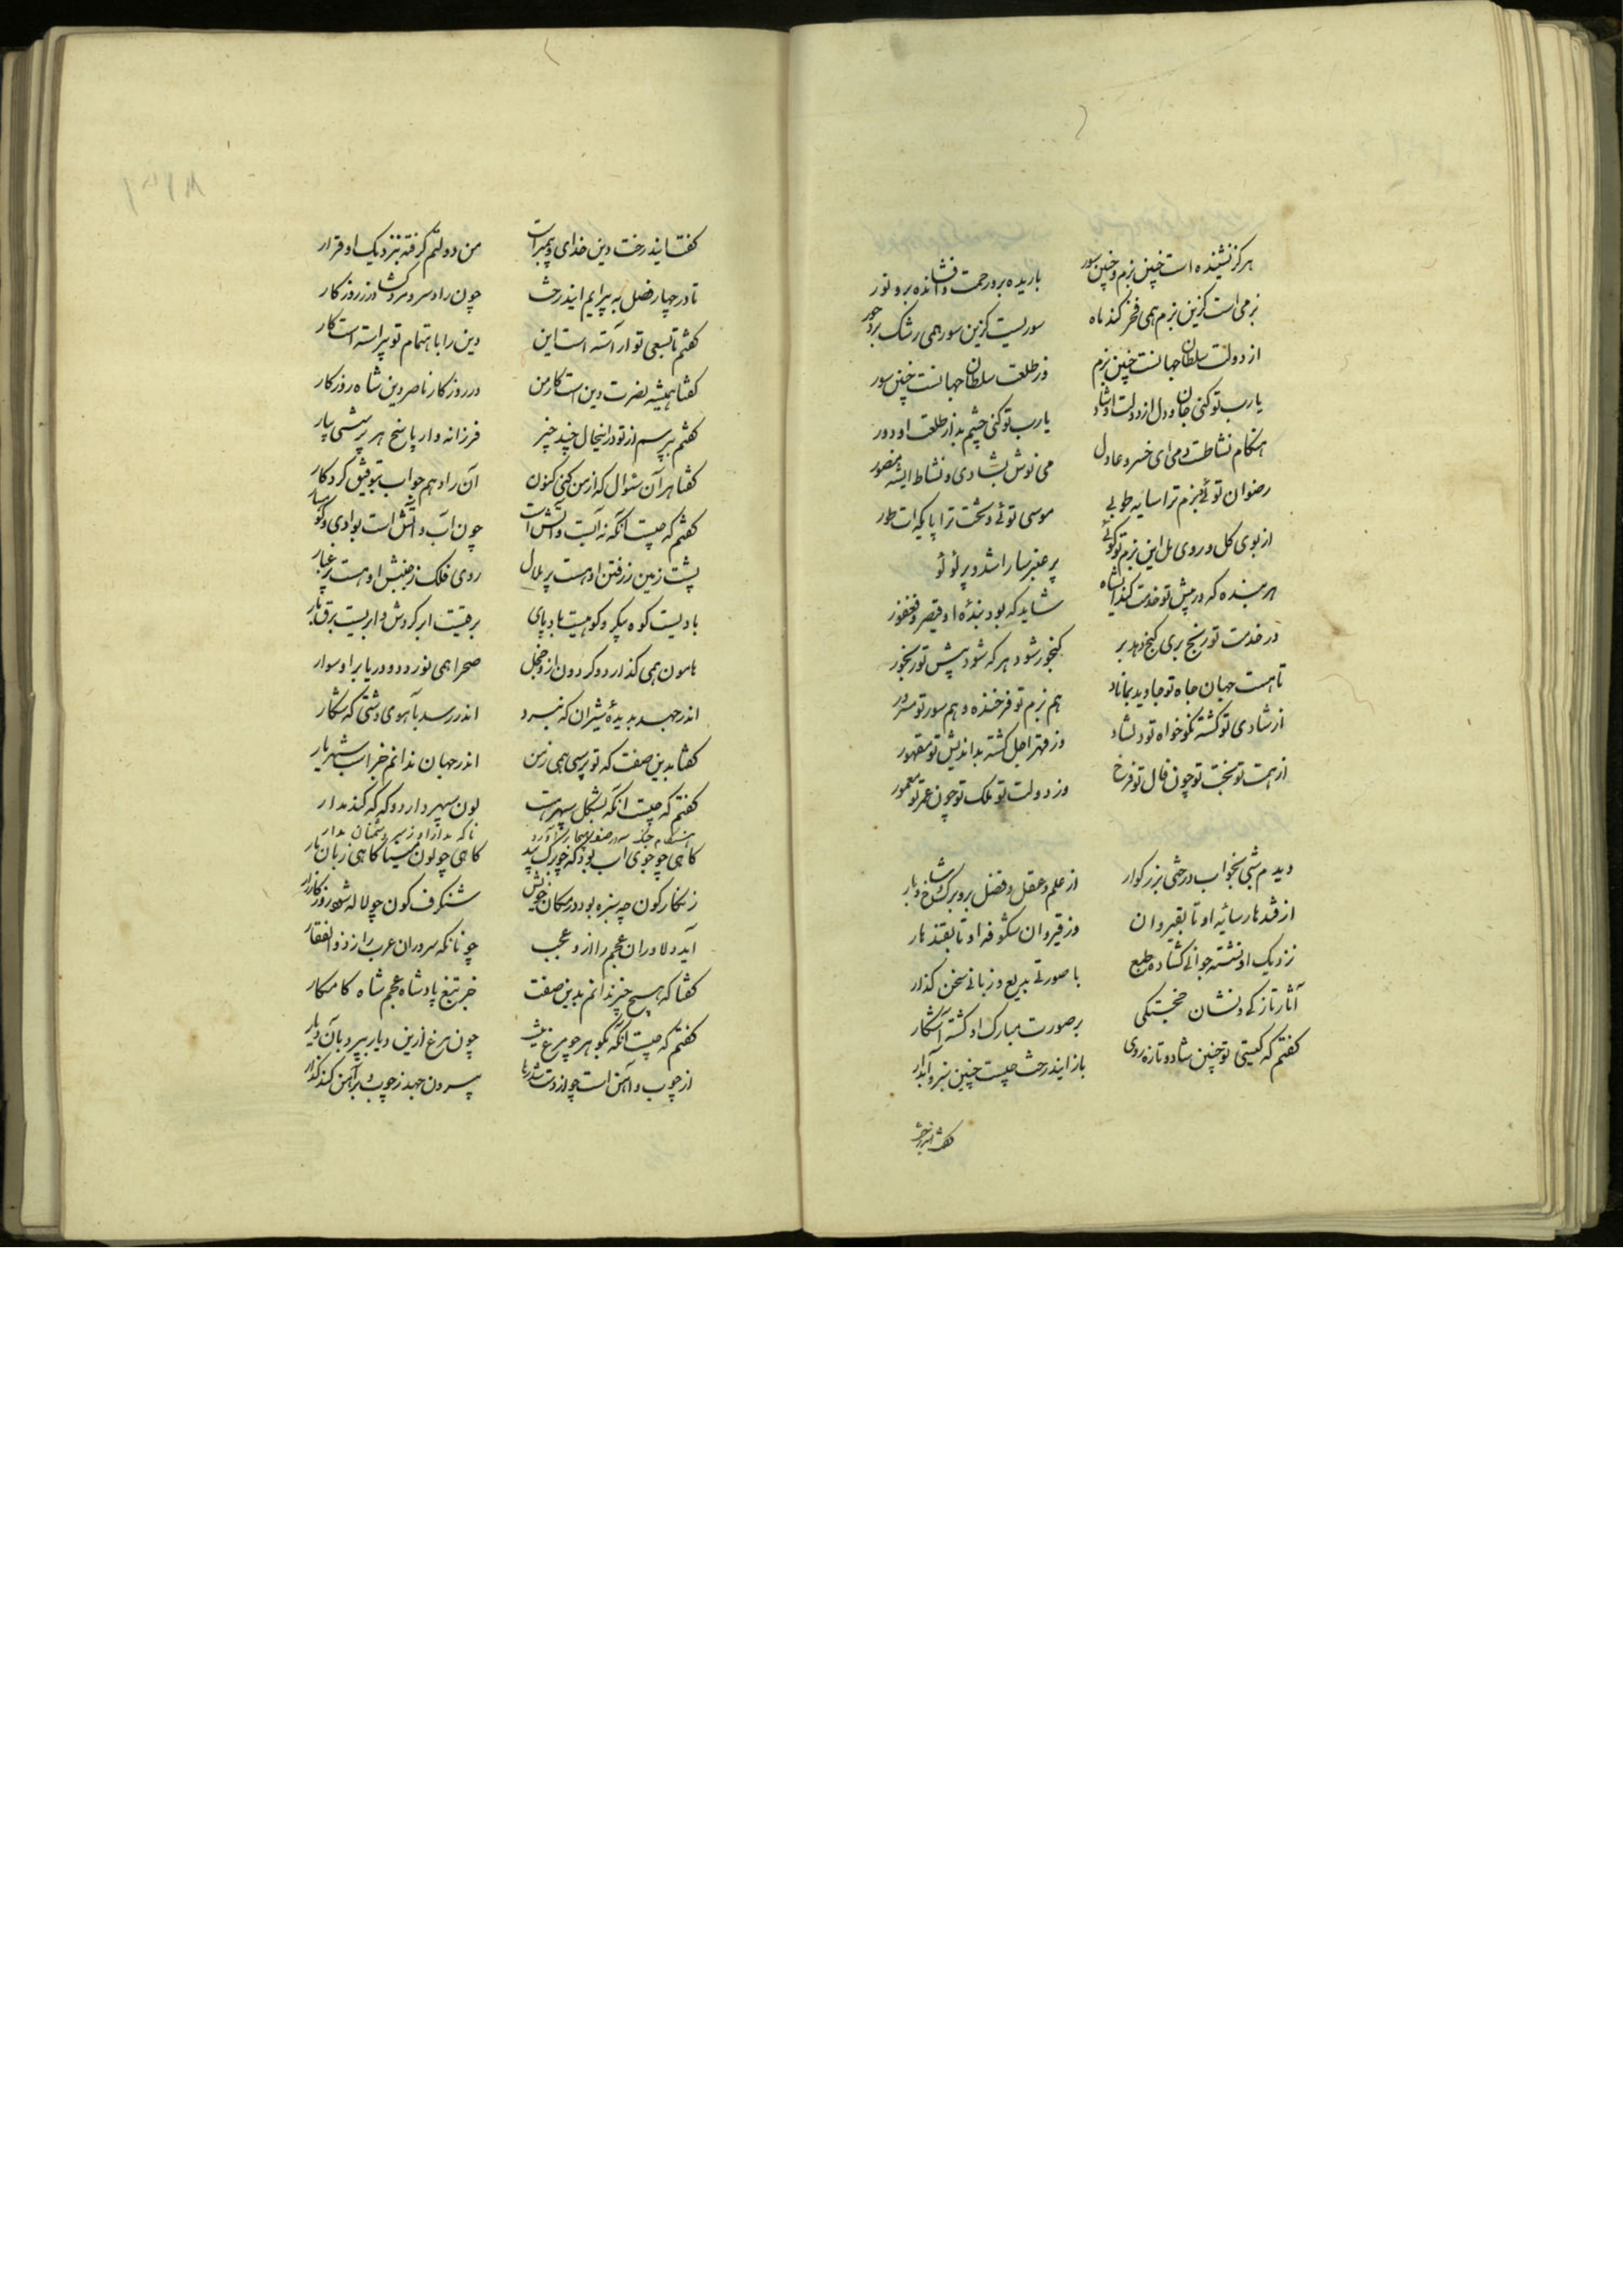 هرکز نشینده است چنین بزم و چنین سور باریده برو رحمت و افشانده برو نور
بزمی است کزین بزم همی فخر کند ماه سوریست کزین سور همی رشک برد حور
از دولت سلطان جهانست چنین بزم وز طلعت سلطان جهانست چنین سور
یا رب تو کنی جان و دل از دولت او شاد یا رب تو کنی چشم بد از طلعت او دور
هنکام نشاطست و می ای خسرو عادل می نوش بشادی و نشاط ای شه منصور
رضوان توئی و بزم ترا سایه طوبی موسی توئی و تخت ترا پایکه ات طور
از بوی کل و روی مل این بزم تو کوئی پر عنبر سارا شد و پر لؤلؤ
هر بنده که در پیش تو خدمت کند ای شاه شاید که بود بندهٔ او قیصر و فغفور
در خدمت تو رنج بری کنج دهد بر کنجور شود هر که شود پیش تو رنجور
تا هست جهان جاه تو جاوید بماناد هم بزم تو فرخنده و هم سور تو مسرور
از شادی تو کشته نکوخواه تو دلشاد وز قهر اجل کشته بداندیش تو مقهور
از همت تو بخت تو چون فال تو فرخ وز دولت تو ملک تو چون عمر تو معمور
دیدم شبی بخواب درختی بزرکوار از علم و عقل و فضل برو برک و شاخ و بار
از قندهار سائیه او تا بقیروان وز قیروان شکوفه او تا بقندهار
نزدیک او نشسته جوانی کشاده طبع با صورتی بدیع و زبانی سخن کذار
آثار تازکی و نشان خجستکی بر صورت مبارک او کشته آشکار
کفتم که کیستی تو چنین شاد و تازه روی باز ایندرخت چیست چنین سبز و آبدار
کفت ایندرخت
کفت ایندرخت دین خدای و پیمبرست من دولتم کرفته بنزدیک او قرار
تا در چهار فصل به پیرایم ایندرخت چون راد سرو سرو کشاورز روزکار
کفتم تا بسعی تو آراسته است این دین را باهتمام تو پیراسته است کار
کفتا همیشه نصرت دین است کار من در روزکار ناصر دین شاه روزکار
کفتم بپرسم از تو در اینحال چند چیز فرزانه وار پاسخ هر پرسشی بیار
کفتا هر آن سئوال که از من کنی کنون آن را دهم جواب بتوفیق کردکار
کفتم که چیست آنکه نه آبست و آتش است چون آب و آتش است بوادی و کوهسار
پشت زمین ز رفتن او هست پر هلال روی فلک ز جنبش او هست پر غبار
بادیست کوه پیکر و کوهیست باد پای برقیست ابر کردش و ابریست برق بار
هامون همی کذارد و کردون ازو خجل صحرا همی نوردد و دریا برو سوار
اندر جهد بدیدهٔ شیران که نبرد اندر رسد بآهوی دشتی که شکار
کفتا بدین صفت که تو پرسی همی ز من اندر جهان ندانم جز اسب شهریار
کفتم که چیست آنکه بشکل سپهرست لون سپهر دارد و که که کند مدار
هنکام جنک
کاهی چو جوی آب بود که چو برک بید کاهی چو لون مینا کاهی زبان مار
زنکارکون چه سبزه بود در مکان خویش شنکرف کون چو لاله شود روز کارزار
آید دلاوران عجم را ازو عجب چونانکه سروران عرب را ز ذوالفقار
کفتا که هیچ چیز ندانم بدین صفت جز تیغ پادشاه عجم شاه کامکار
کفتم که چیست آنکه بکوهر چو مرغ نیست چون مرغ ازین دیار بپرد بآن دیار
از چوب و آهن است چو از دست شد رها بیرون جهد ز چوب و بر آهن کند کذار